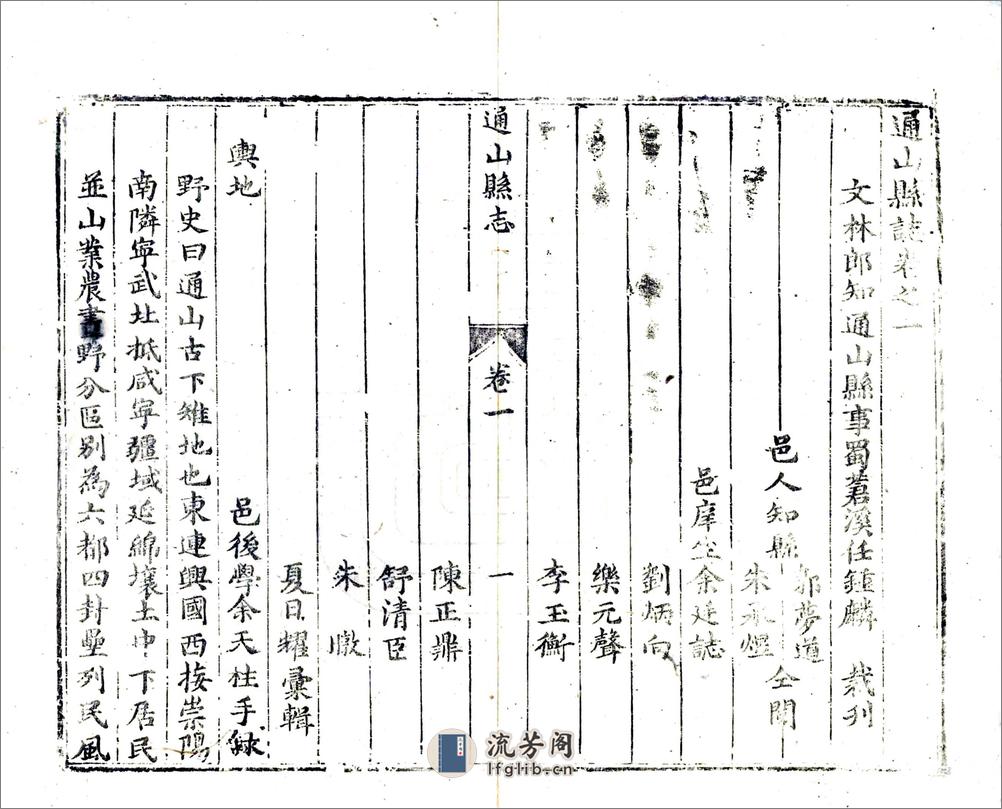 通山縣誌卷之一
文林郎知通山縣事蜀蓍溪任鍾麟 裁刋
郭夢道
邑人知縣 仝閱
朱永燈
邑庠生余廷誌
劉炳向
樂元聲
李玉衡
通山縣志 卷一 一
陳正鼎
舒清臣
朱
夏日耀彙輯
邑後學余天柱手錄
輿地
野史曰通山古下雉地也東連興國西接崇陽
南隣寧武北抵咸寧疆域延綿壤土中下居民
並山業農書野分區别為六都四封壘列民風
流芳阁
lfglib.cn